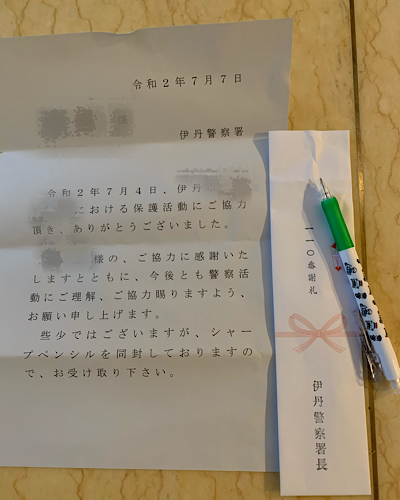 令和２年７月７日
伊丹警察署
令和２年７月４日、伊丹
における保護活動にご協力
頂き、ありがとうございました。
様の、ご協力に感謝いた
しますとともに、今後とも警察活
動にご理解、ご協力賜りますよう、
お願い申し上げます。
些少ではございますが、シャー
プペンシルを同封しておりますの
で、お受け取り下さい。
一一〇番謝礼
伊丹警察署長